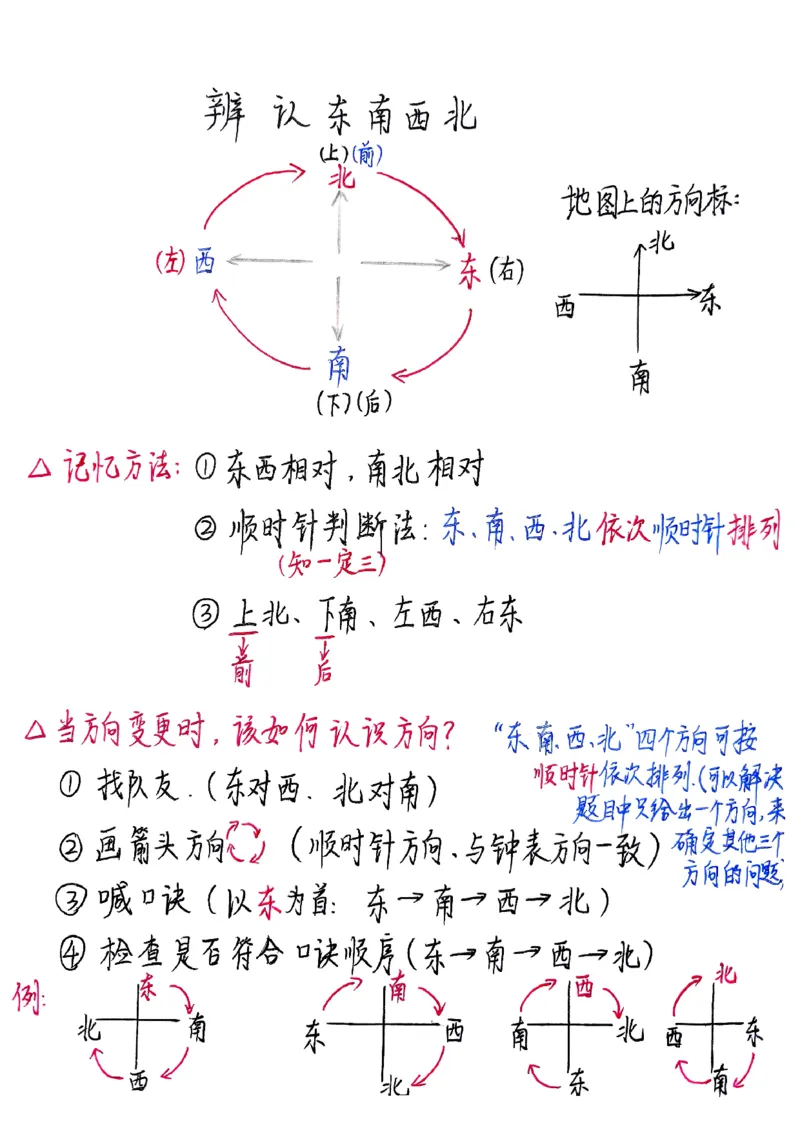 辨认东南西北
(上)(前)
北
地图上的方向标:
北
(左)西
东(右)
西
东
南
南
(下)(后)
△记忆方法:①东西相对,南北相对
②顺时针判断法:东、南、西、北依次顺时针排列
(知一定三)
③上北、下南、左西、右东
前 后
△当方向变更时,该如何认识方向?
“东、南、西、北”四个方向可按
顺时针依次排列.(可以解决
题目中只给出一个方向,来
确定其他三个
方向的问题)
①找队友.(东对西.北对南)
②画箭头方向(顺时针方向、与钟表方向一致)
③喊口诀(以东为首:东→南→西→北)
④检查是否符合口诀顺序(东→南→西→北)
例:
东
北 南
西
南
东 西
北
西
南 北
东
北
西 东
南